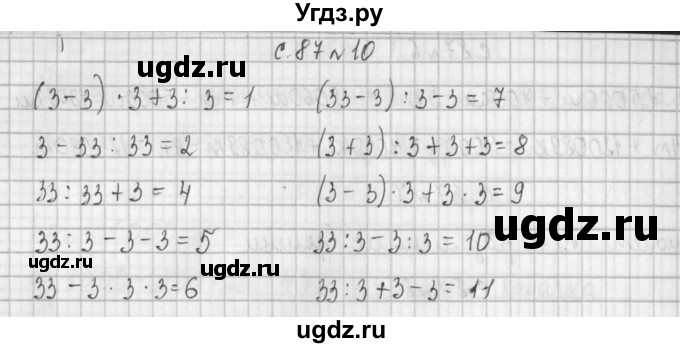 Угdz.ру
с. 87 № 10
(3-3) · 3+3 : 3 = 1
(33-3) : 3-3 = 7
ugdz.ru
3-33 : 33 = 2
(3+3) : 3+3+3=8
ugdz.ru
33 : 33+3 = 4
(3-3) · 3+3 · 3 = 9
ugdz.ru
33 : 3-3-3=5
33:3-3:3 = 10
ugdz.ru
ugdz.ru
33-3 · 3 · 3=6
33:3+3-3= 11
ugdz.ru
ugdz.ru